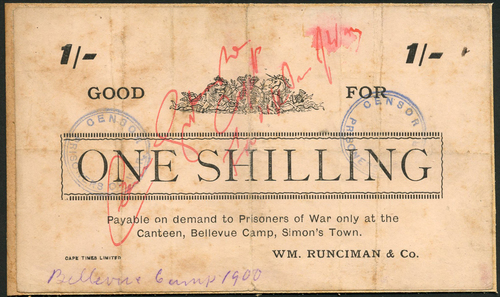 1/- 1/-
GOOD FOR
CENSOR CENSOR
ONE SHILLING
Payable on demand to Prisoners of War only at the
Canteen, Bellevue Camp, Simon's Town.
CAPE TIMES LIMITED WM. RUNCIMAN & Co.
Bellevue Camp 1900